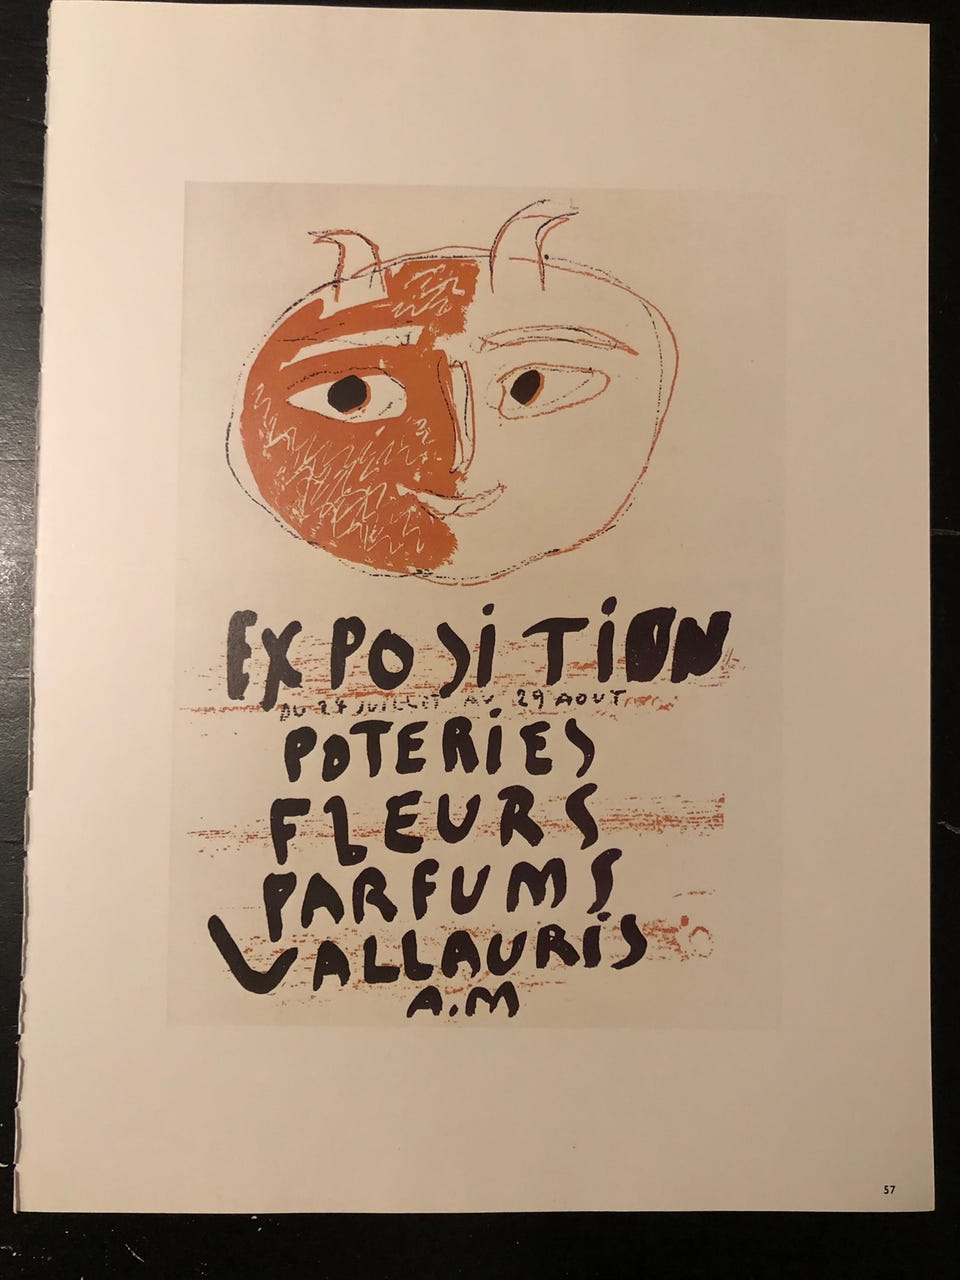 EXPOSiTiON
DU 24 JUILLET AU 29 AOUT
POTERiES
FLEURS
PARFUMS
VALLAURiS
A.M
57